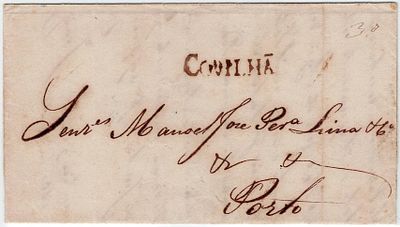 30
COVILHÃ
Senres Manoel Joze Pera Lima & Ca
& &
Porto